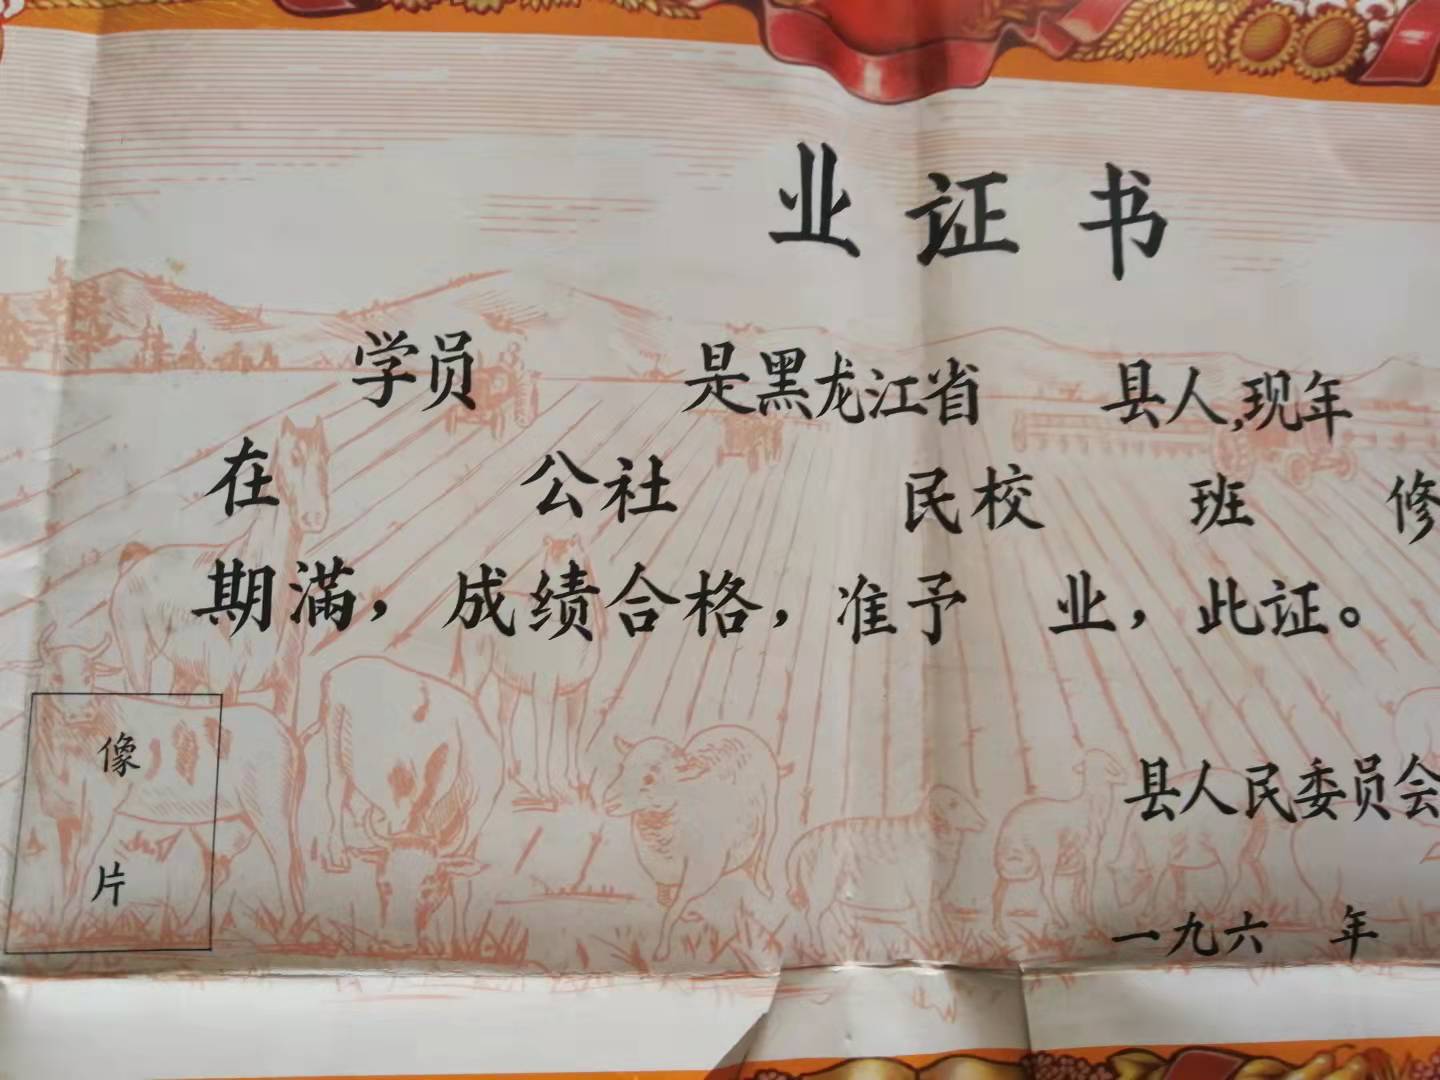 业证书
学员 是黑龙江省 县人,现年
在 公社 民校 班 修
期满，成绩合格，准予 业，此证。
像
片
县人民委员会
一九六 年